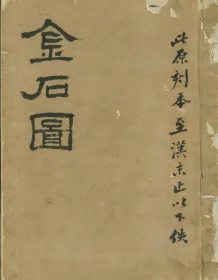 金石圖
此原刻本至漢末止以下佚